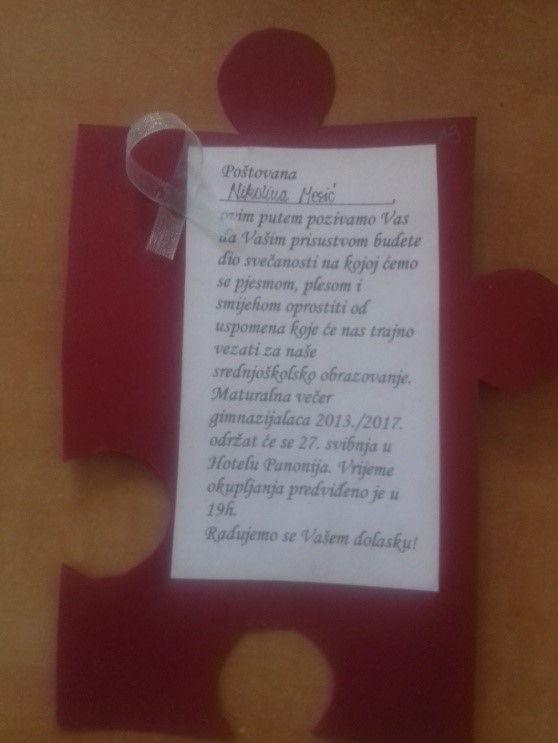 Poštovana
Nikolina Mesić,
ovim putem pozivamo Vas
da Vašim prisustvom budete
dio svečanosti na kojoj ćemo
se pjesmom, plesom i
smijehom oprostiti od
uspomena koje će nas trajno
vezati za naše
srednjoškolsko obrazovanje.
Maturalna večer
gimnazijalaca 2013./2017.
održat će se 27. svibnja u
Hotelu Panonija. Vrijeme
okupljanja predviđeno je u
19h.
Radujemo se Vašem dolasku!
13